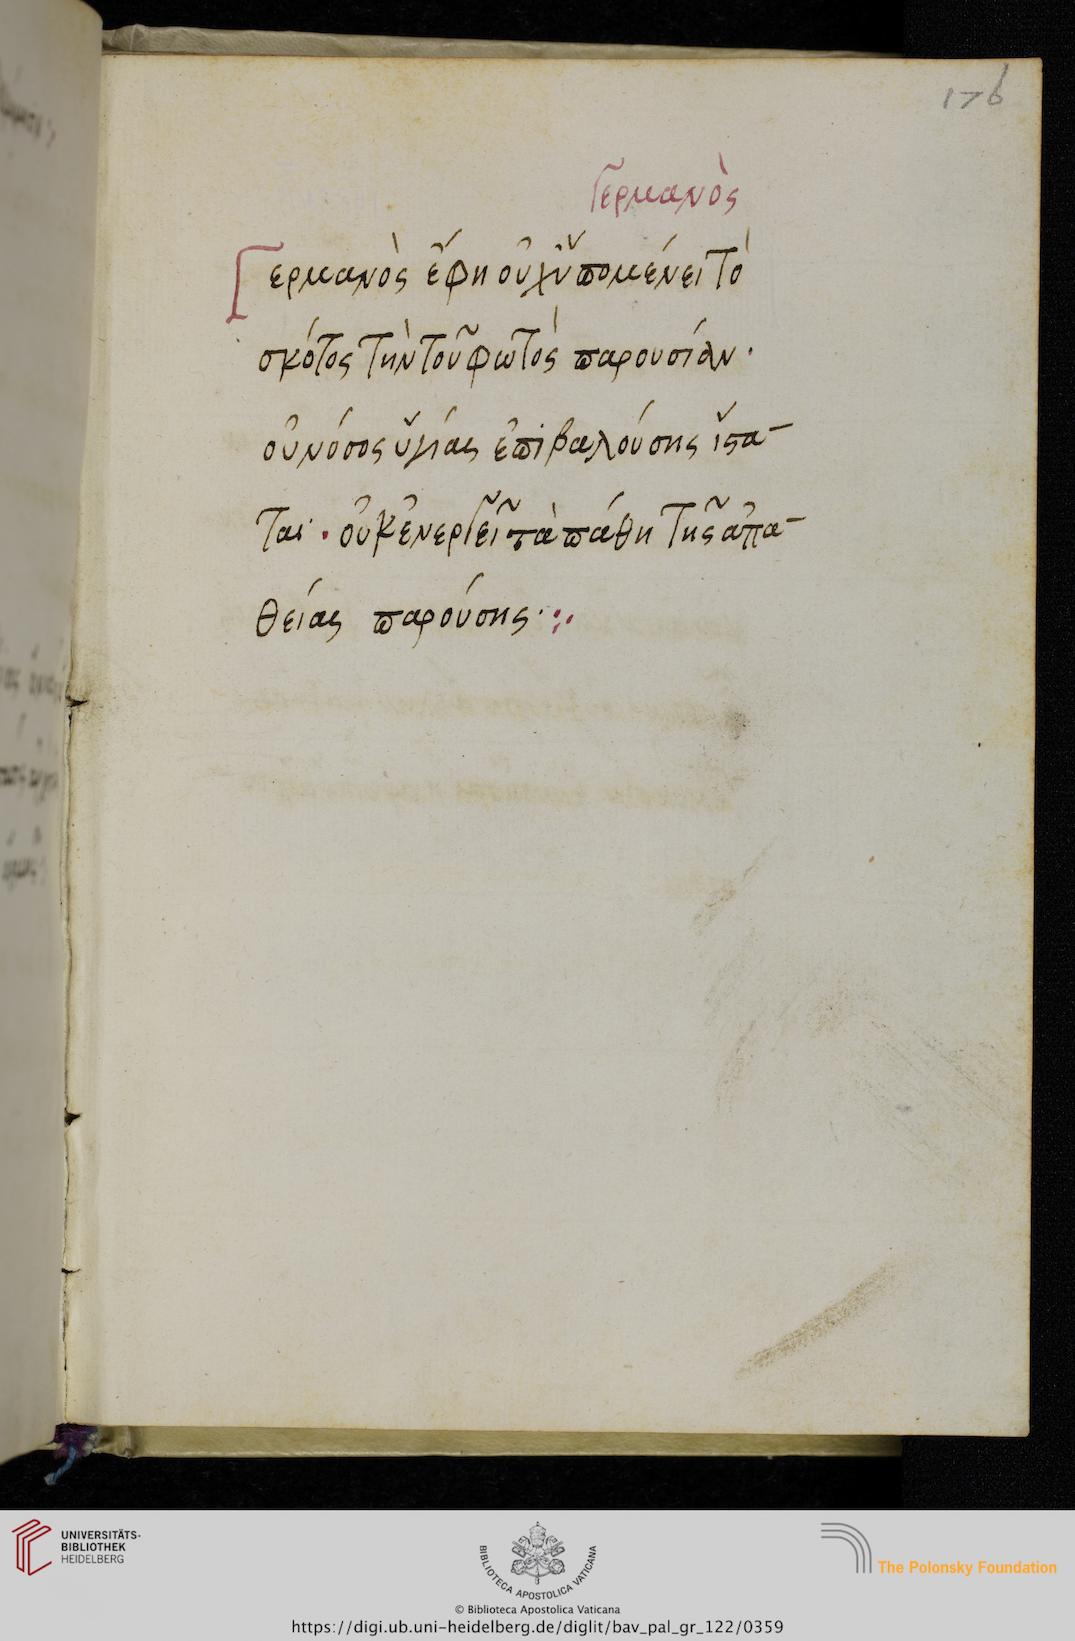 176
Γερμανὸς
Γερμανὸς ἔφη οὐχ ὑπομένει τὸ
σκότος τὴν τοῦ φωτὸς παρουσίαν·
οὐ νόσος ὑγίας ἐπιβαλούσης ἵστα-
ται· οὐκ ἐνεργεῖ τὰ πάθη τῆς ἀπα-
θείας παρούσης·:·
UNIVERSITÄTS-
BIBLIOTHEK
HEIDELBERG
BIBLIOTECA APOSTOLICA VATICANA
The Polonsky Foundation
© Biblioteca Apostolica Vaticana
https://digi.ub.uni-heidelberg.de/diglit/bav_pal_gr_122/0359